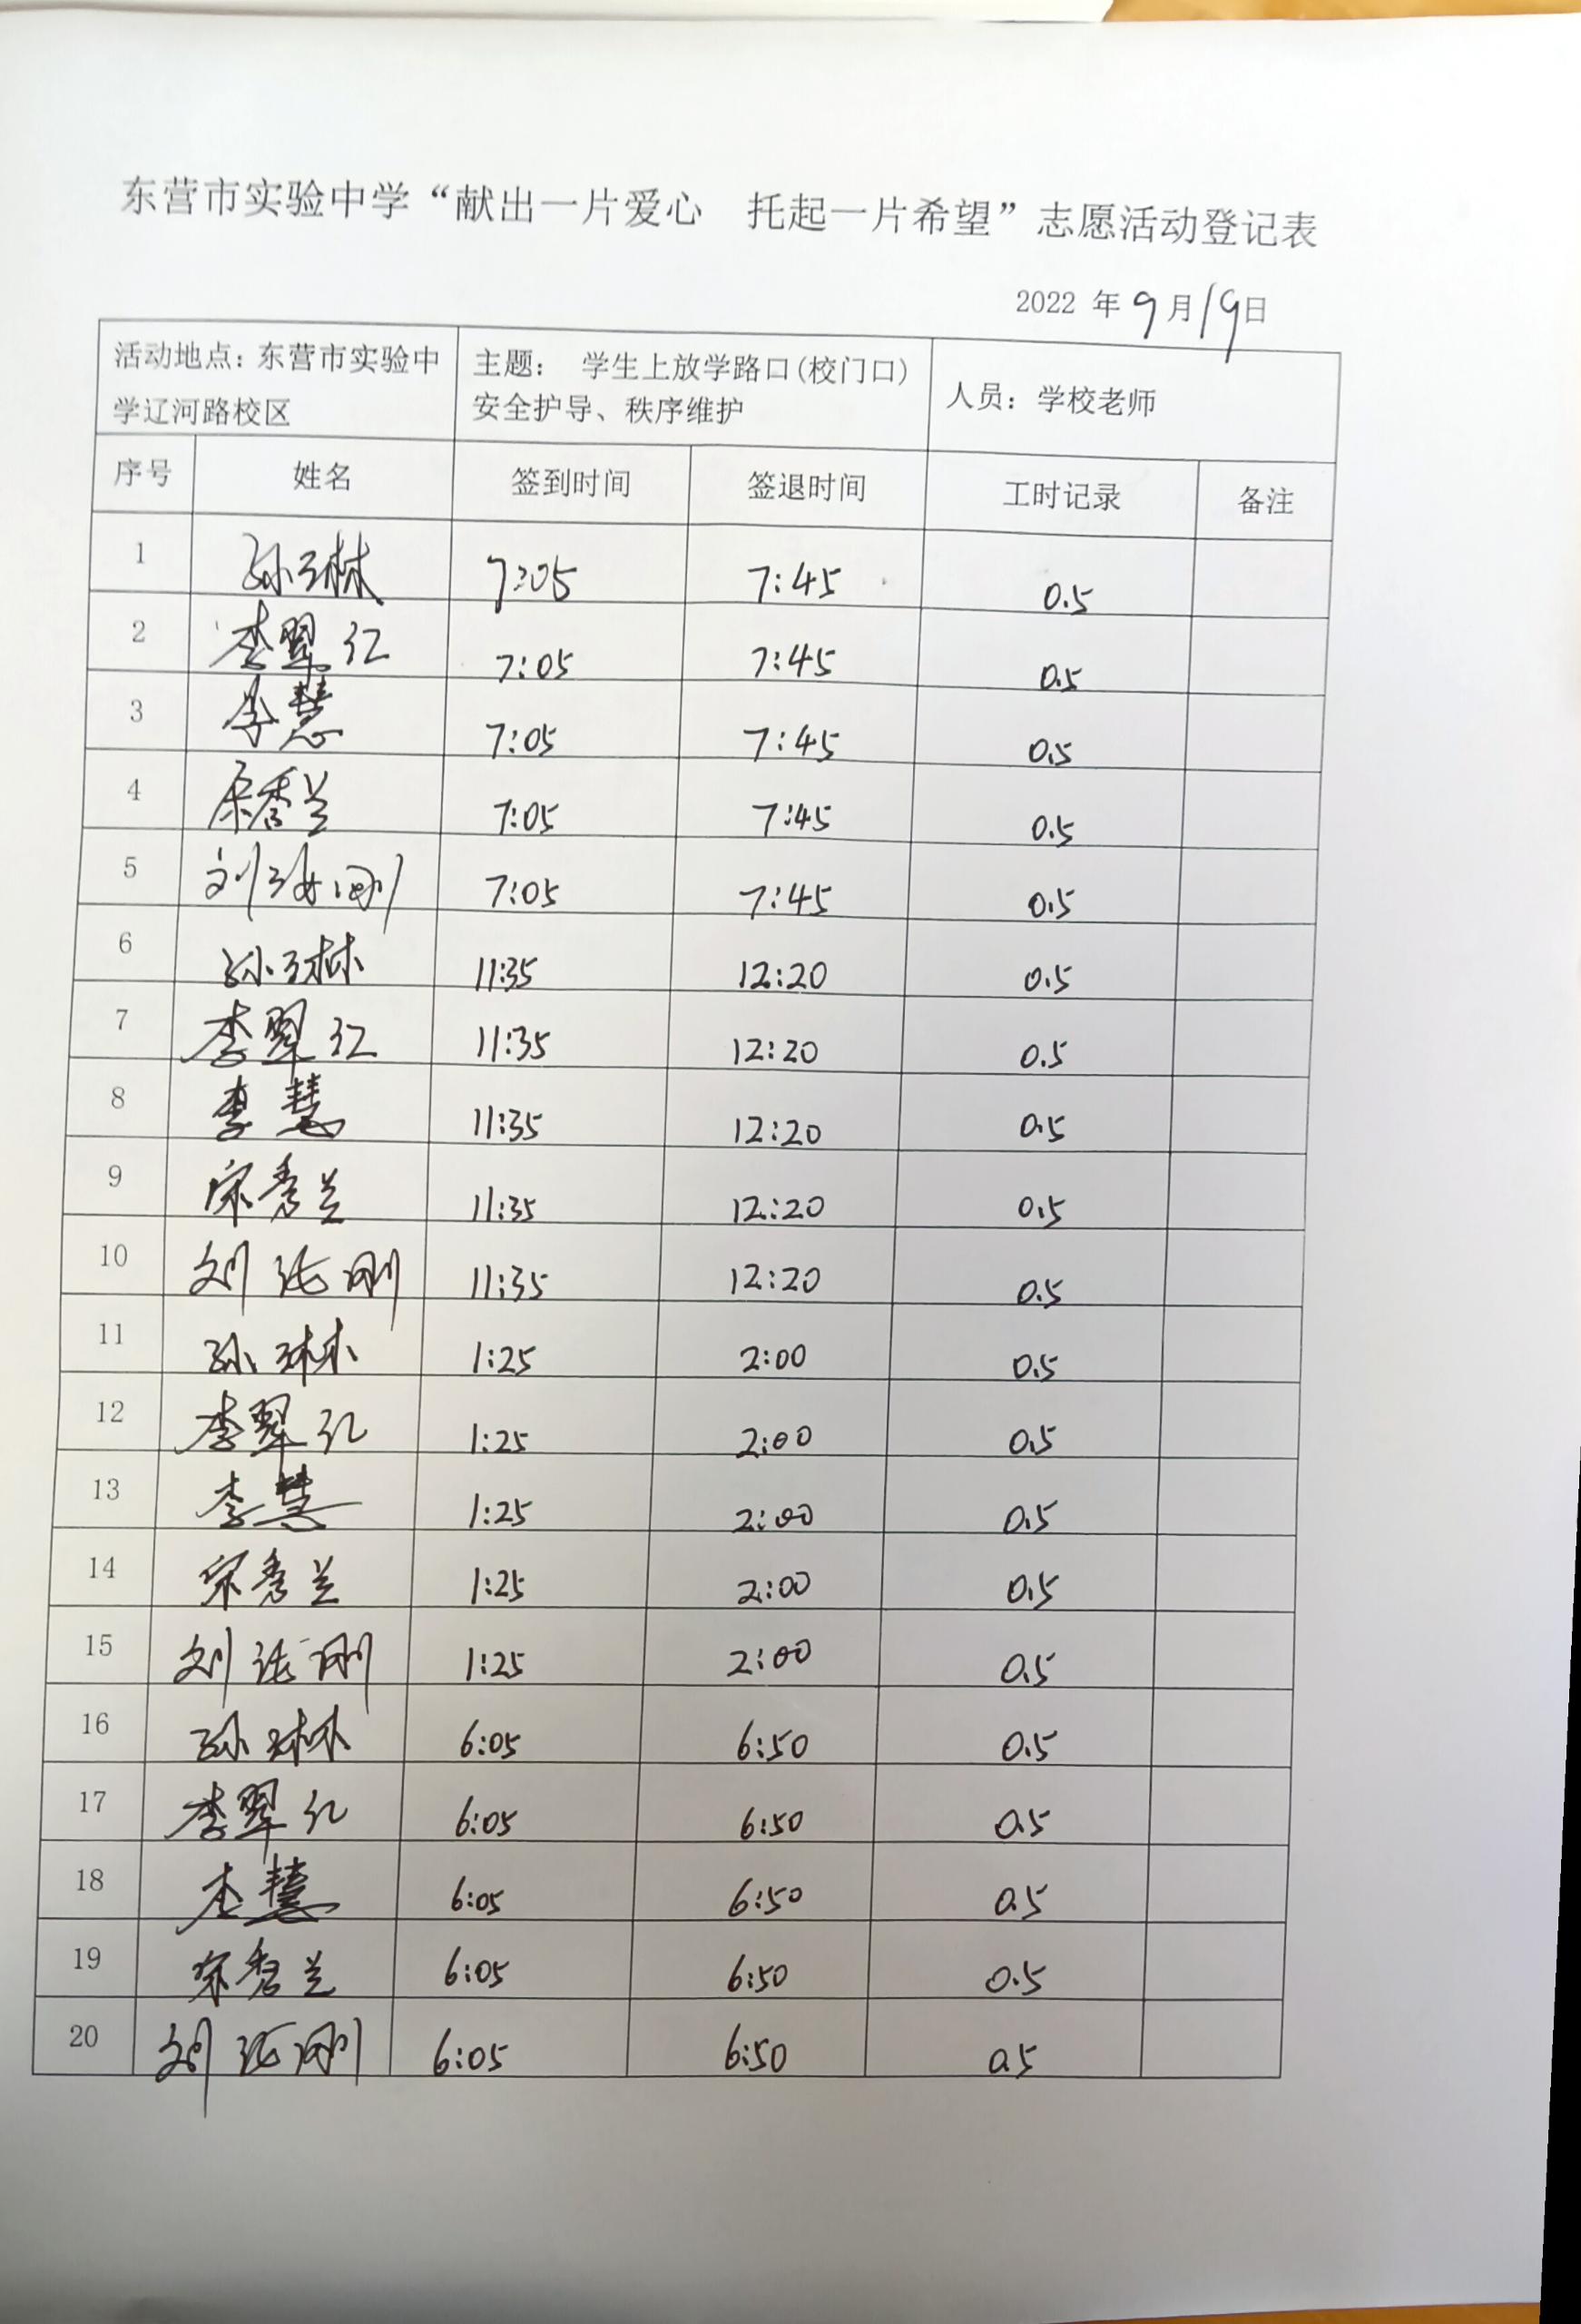 东营市实验中学“献出一片爱心 托起一片希望”志愿活动登记表
2022 年 9 月 19 日
活动地点：东营市实验中学辽河路校区 主题： 学生上放学路口(校门口)安全护导、秩序维护 人员：学校老师
序号 姓名 签到时间 签退时间 工时记录 备注
1 孙琳 7:05 7:45 0.5
2 李翠红 7:05 7:45 0.5
3 李慧 7:05 7:45 0.5
4 宋秀兰 7:05 7:45 0.5
5 刘 刚 7:05 7:45 0.5
6 孙琳 11:35 12:20 0.5
7 李翠红 11:35 12:20 0.5
8 李慧 11:35 12:20 0.5
9 宋秀兰 11:35 12:20 0.5
10 刘 刚 11:35 12:20 0.5
11 孙琳 1:25 2:00 0.5
12 李翠红 1:25 2:00 0.5
13 李慧 1:25 2:00 0.5
14 宋秀兰 1:25 2:00 0.5
15 刘 刚 1:25 2:00 0.5
16 孙琳 6:05 6:50 0.5
17 李翠红 6:05 6:50 0.5
18 李慧 6:05 6:50 0.5
19 宋秀兰 6:05 6:50 0.5
20 刘 刚 6:05 6:50 0.5